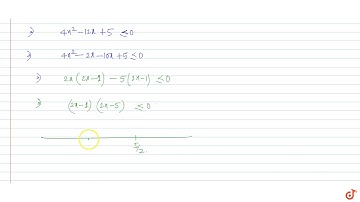 ⇒) 4x² -12x + 5 ≤ 0
⇒) 4x² - 2x - 10x + 5 ≤ 0
⇒) 2x (2x - 1) - 5 (2x - 1) ≤ 0
⇒) (2x - 1) (2x - 5) ≤ 0
5/2